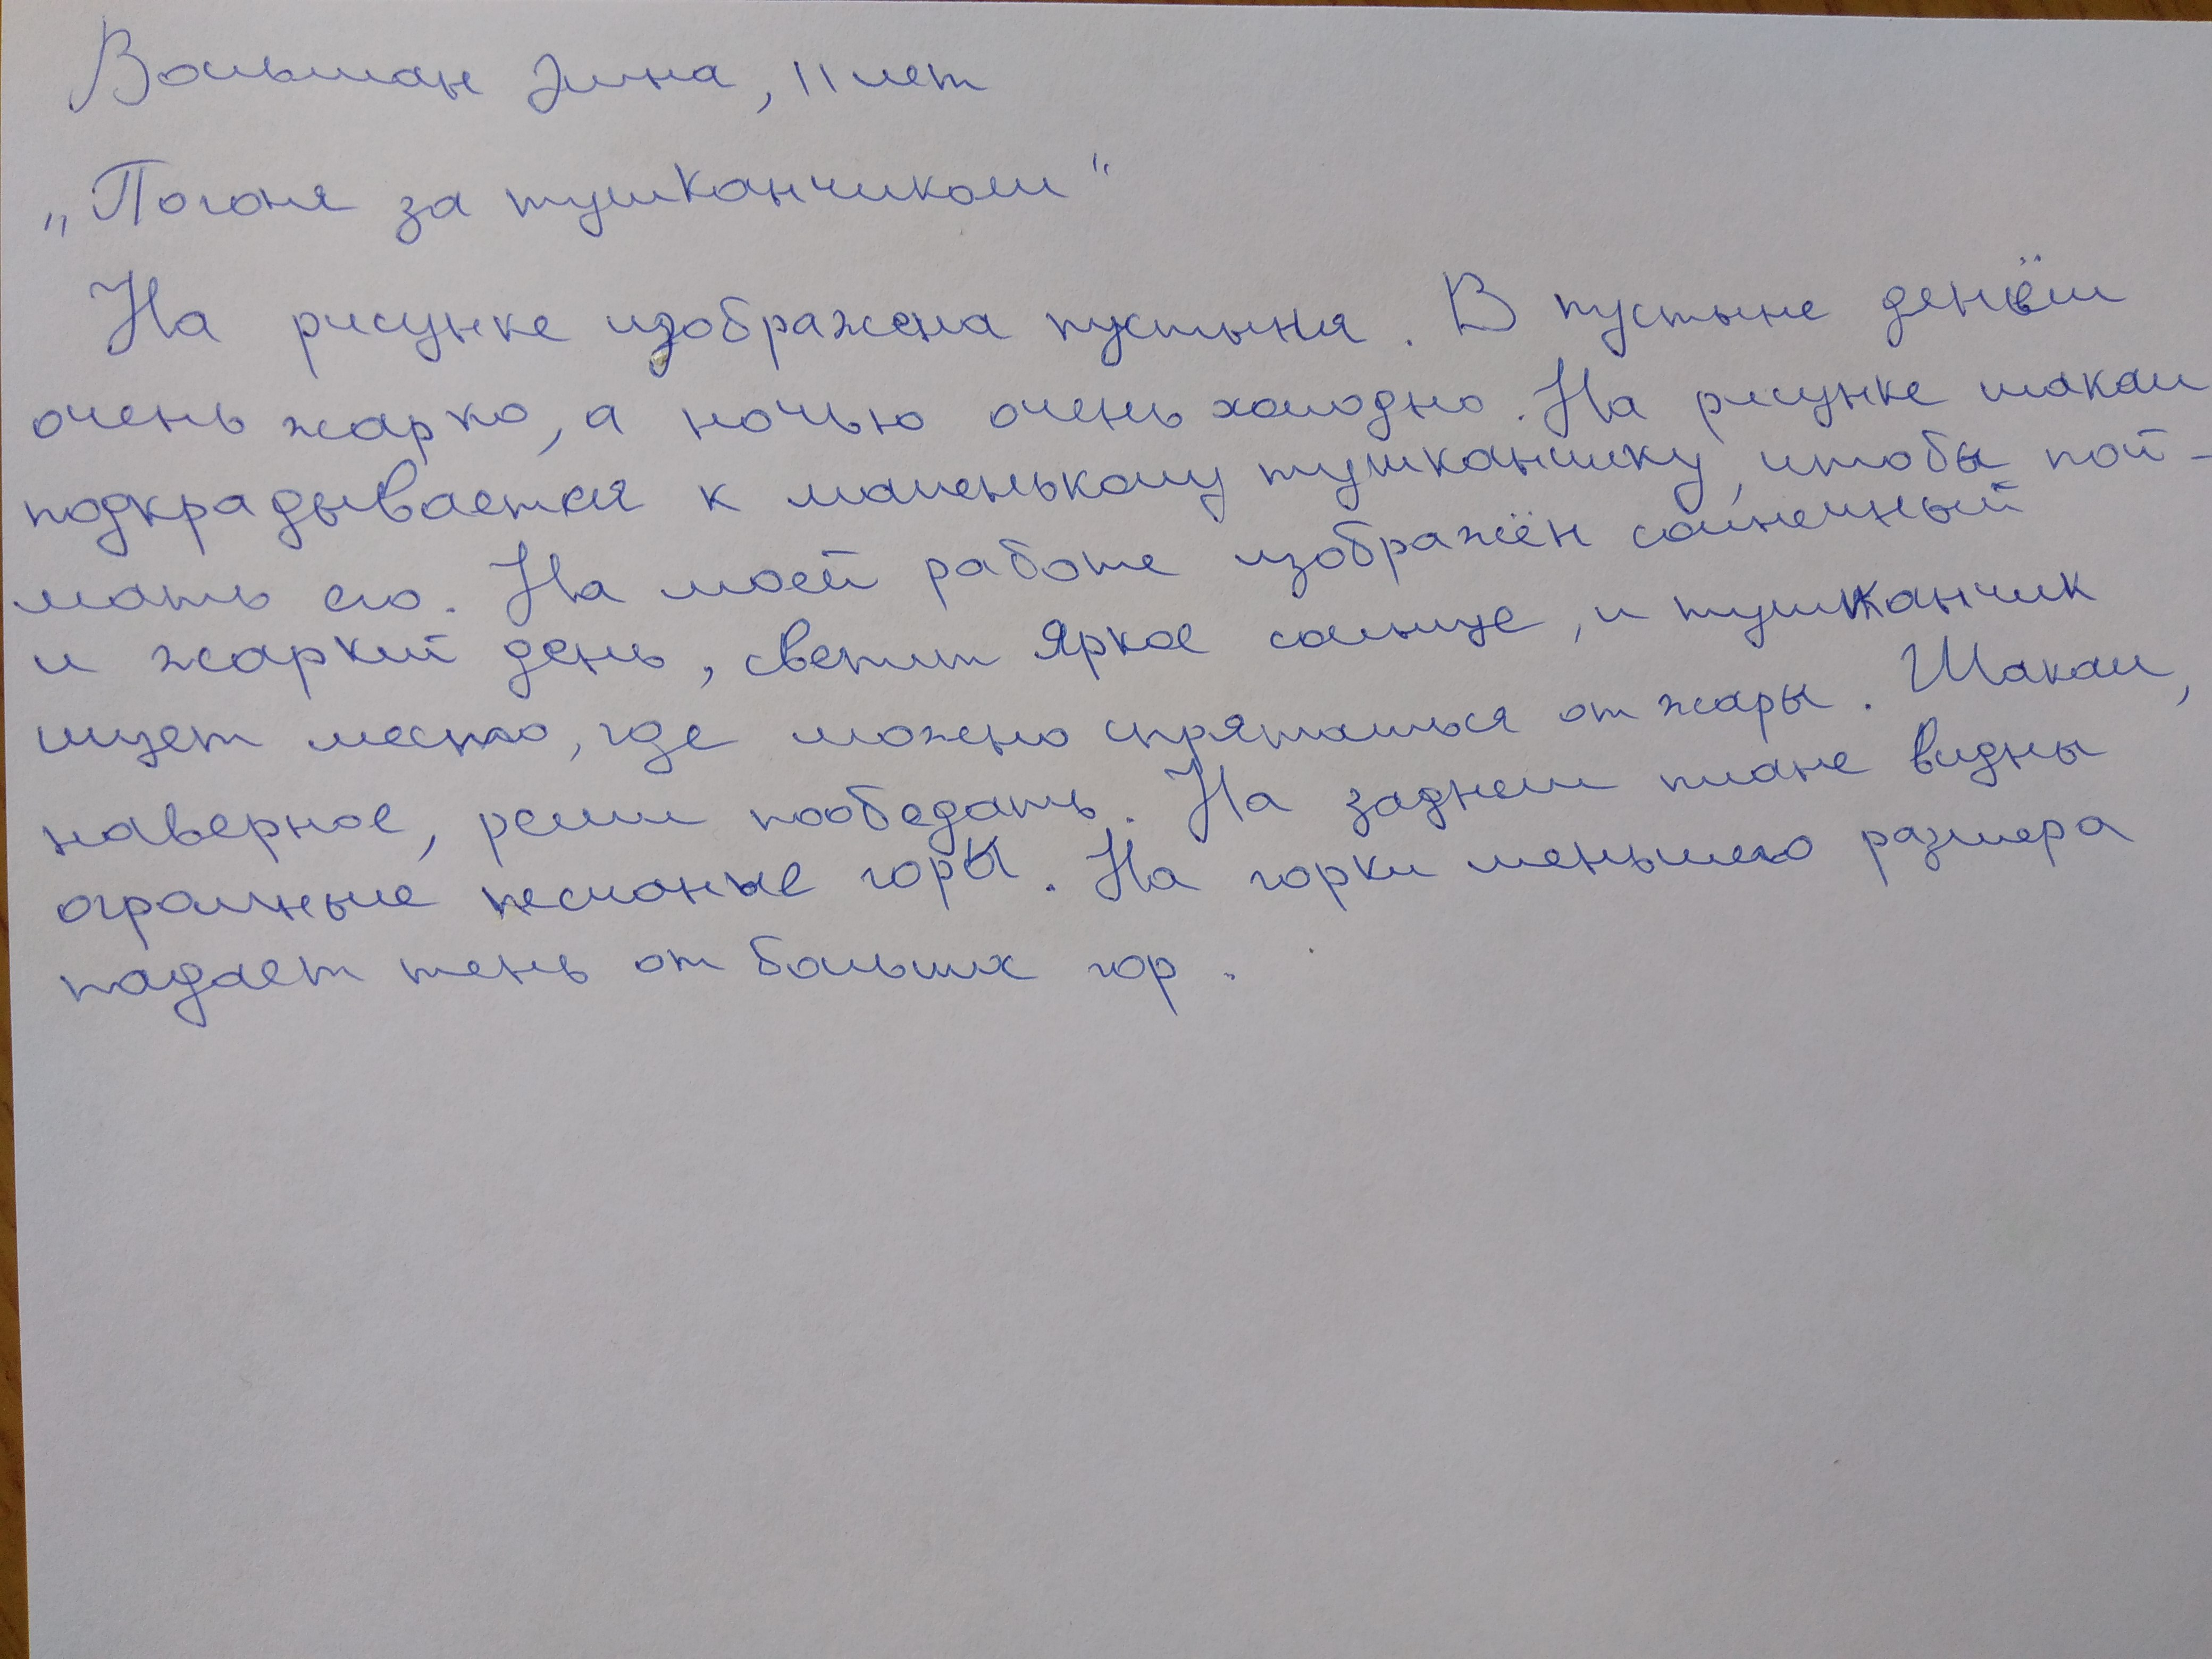 Вольман Элина, 11 лет
„Погоня за тушканчиком“
На рисунке изображена пустыня. В пустыне деньём
очень жарко, а ночью очень холодно. На рисунке шакал
подкрадывается к маленькому тушканчику, чтобы пой-
мать его. На моей работе изображён солнечный
и жаркий день, светит яркое солнце, и тушканчик
ищет место, где можно спрятаться от жары. Шакал,
наверное, решил пообедать. На заднем плане видны
огромные песчаные горы. На горки меньшего размера
падает тень от больших гор.